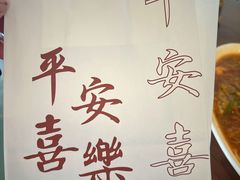 平安喜
平喜
安樂